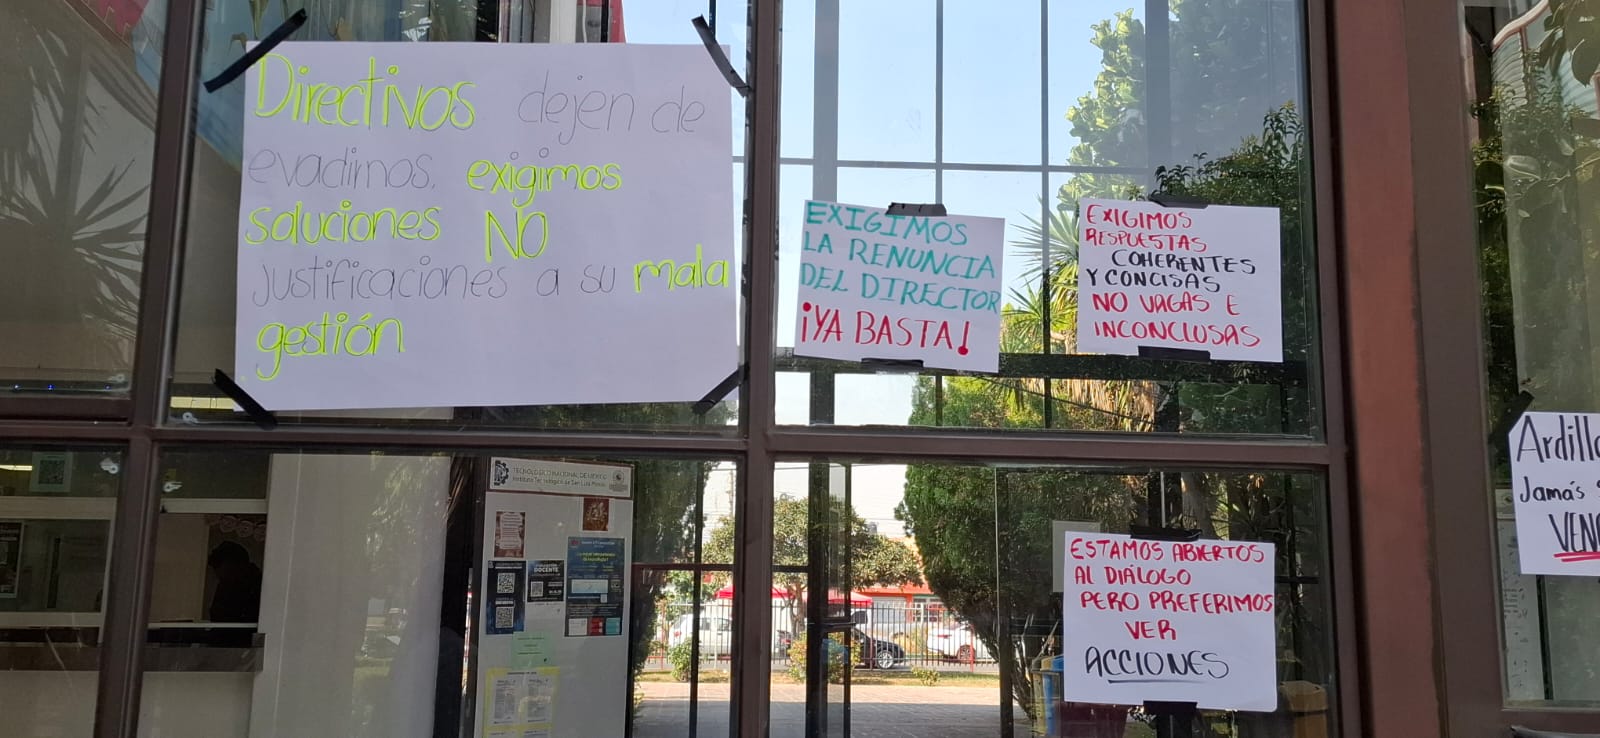 Directivos dejen de
evadirnos, exigimos
soluciones NO
justificaciones a su mala
gestión
EXIGIMOS
LA RENUNCIA
DEL DIRECTOR
¡YA BASTA!
EXIGIMOS
RESPUESTAS
COHERENTES
Y CONCISAS
NO VAGAS E
INCONCLUSAS
ESTAMOS ABIERTOS
AL DIÁLOGO
PERO PREFERIMOS
VER
ACCIONES
Jamás
TECNOLÓGICO NACIONAL DE MÉXICO
Instituto Tecnológico de San Luis Potosí
DOCENTE